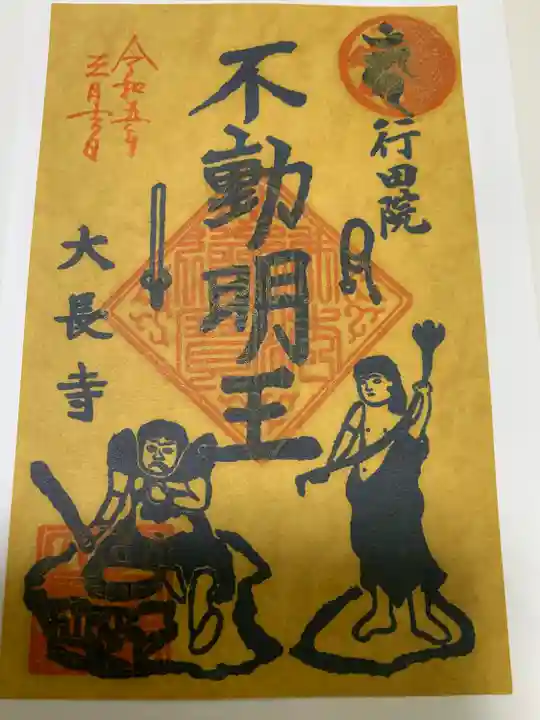 行田院
不動明王
令和五年
三月十六日
大長寺